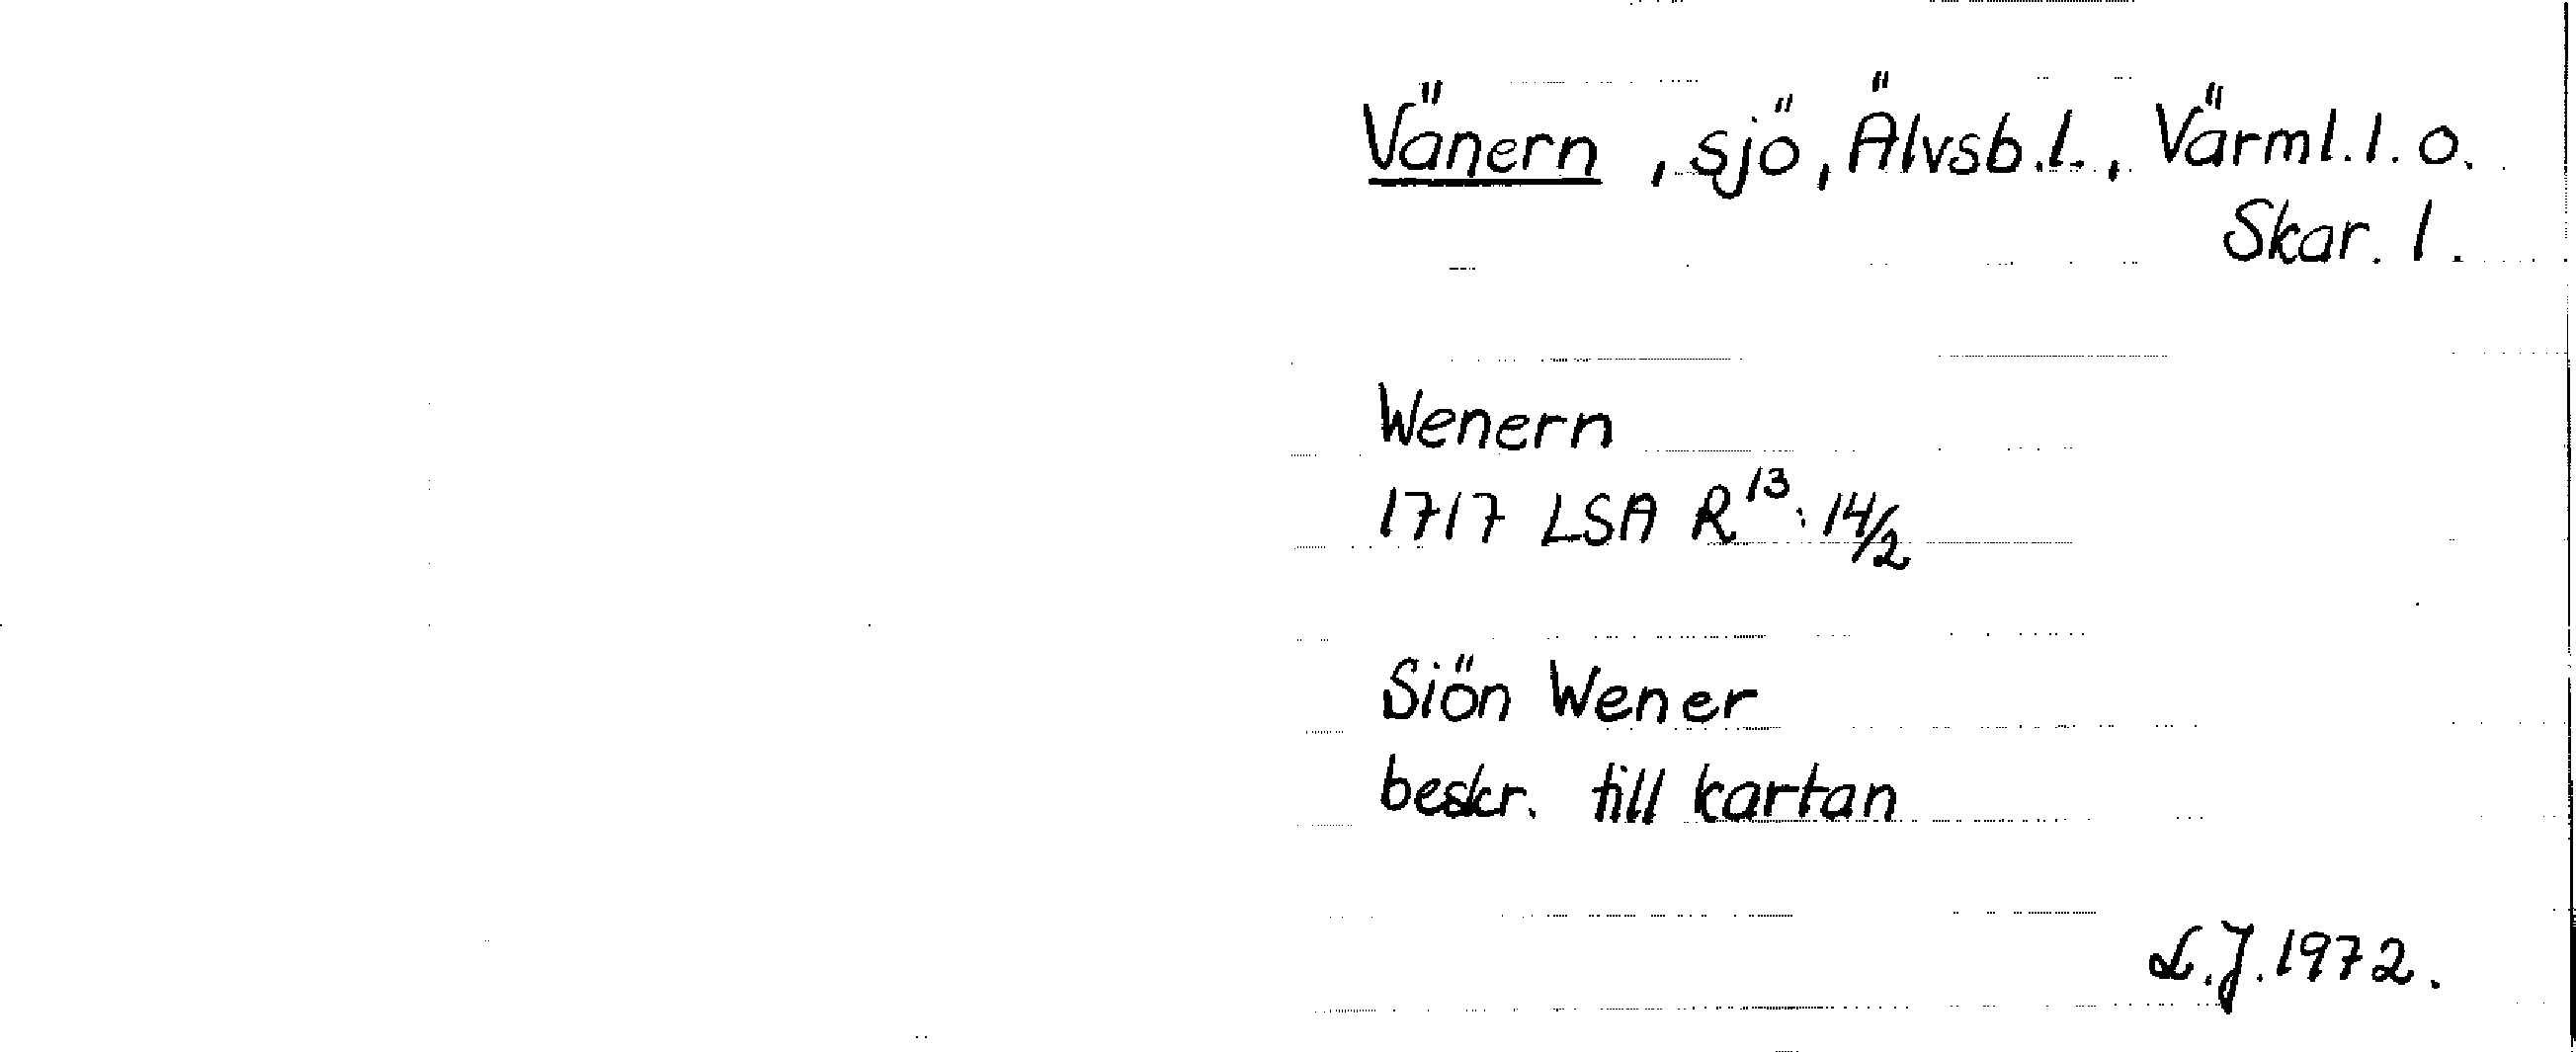 Vänern, sjö, Älvsb.l., Värml.l. o.
Skar. l.
Wenern
1717 LSA R¹³: 14/2
Siön Wener
beskr. till kartan
L.J. 1972.